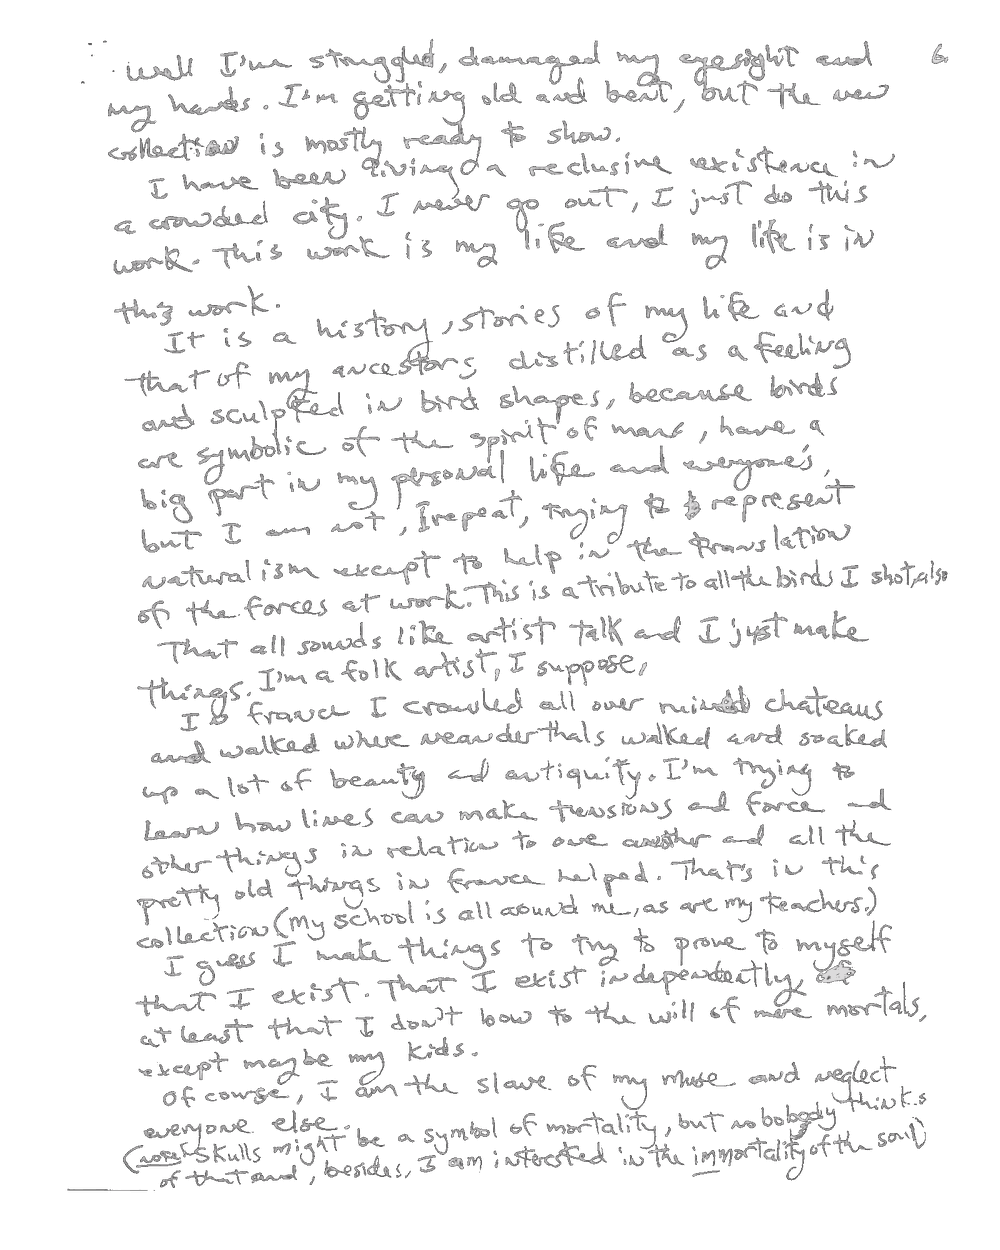 6.
Well I'm struggled, damaged my eyesight and
my hands. I'm getting old and beat, but the new
collection is mostly ready to show.
I have been living a reclusive existence in
a crowded city. I never go out, I just do this
work. This work is my life and my life is in
this work.
It is a history, stories of my life and
that of my ancestors distilled as a feeling
and sculpted in bird shapes, because birds
are symbolic of the spirit of man, have a
big part in my personal life and everyone's,
but I am not, I repeat, trying to represent
naturalism except to help in the translation
of the forces at work. This is a tribute to all the birds I shot, also
That all sounds like artist talk and I just make
things. I'm a folk artist, I suppose,
In france I crawled all over ruined chateaus
and walked where neanderthals walked and soaked
up a lot of beauty and antiquity. I'm trying to
learn how lines can make tensions and force and
other things in relation to one another and all the
pretty old things in france helped. That's in this
collection (My school is all around me, as are my teachers.)
I guess I make things to try to prove to myself
that I exist. That I exist independently,
at least that I don't bow to the will of mere mortals,
except maybe my kids.
Of course, I am the slave of my muse and neglect
everyone else.
(note: Skulls might be a symbol of mortality, but nobobody thinks
of that and, besides, I am interested in the immortality of the soul)